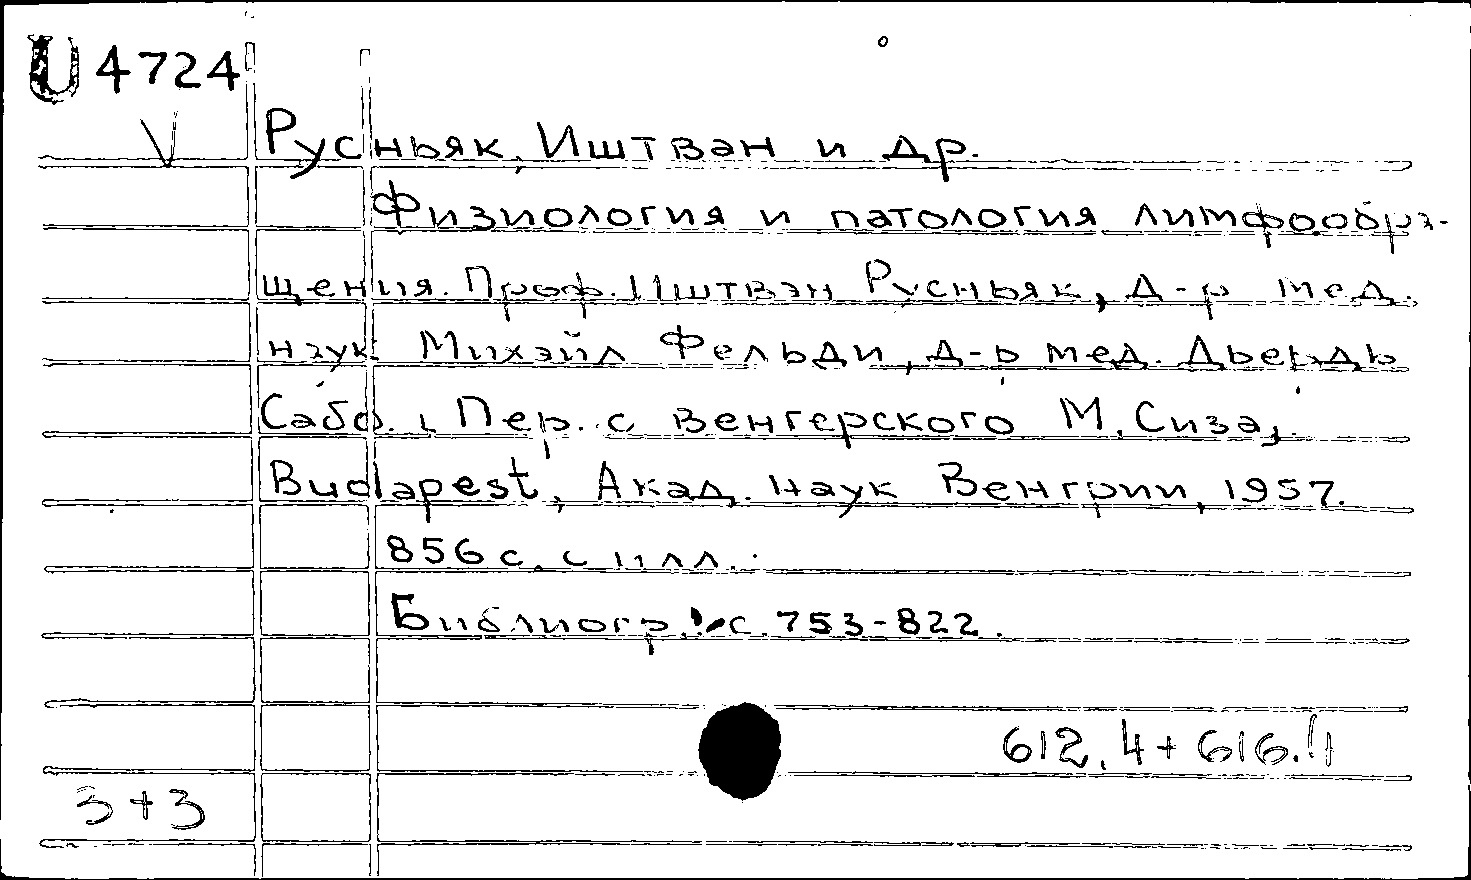 U 4724
Русньяк, Иштван и др.
Физиология и патология лимфообра-
щения. Проф. Иштван Русньяк, д-р мед.
наук Михайл Фельди, д-р мед. Дьердь
Сабо. Пер. с венгерского М. Сиза,
Budapest, Акад. наук Венгрии, 1957.
856 с. с илл.
Библиогр. с. 753-822.
612.4+616.4
3+3